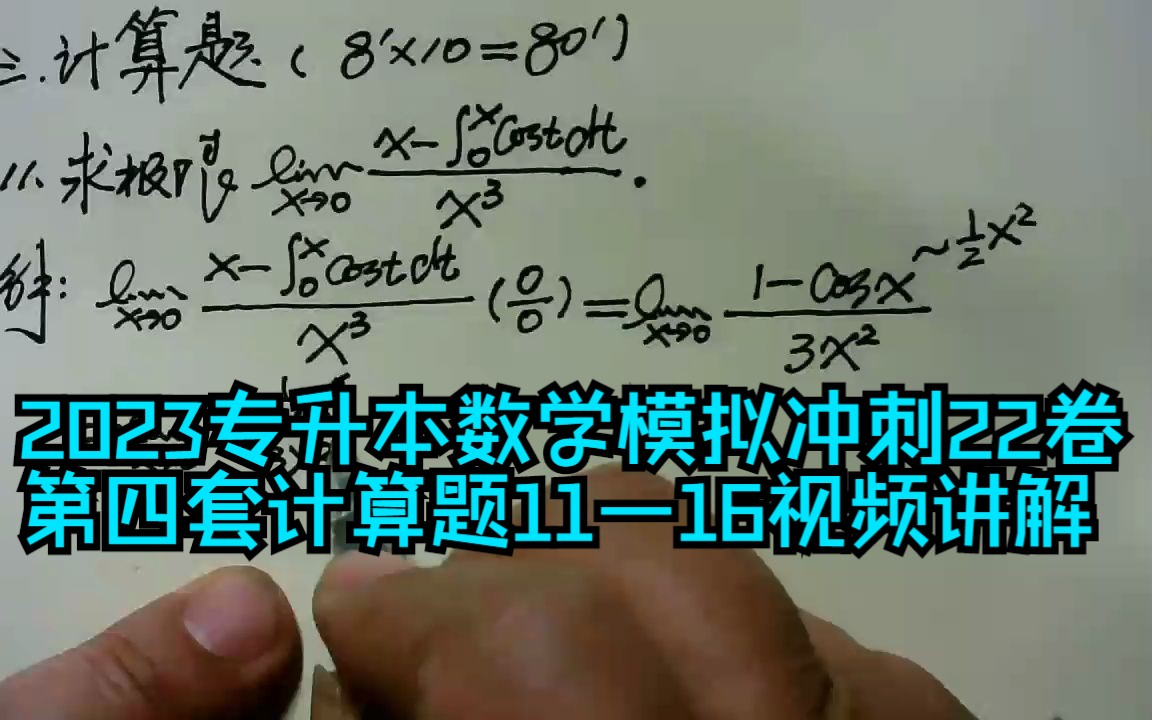 三.计算题(8'×10=80')
11.求极限 lim x→0 (x-∫₀ˣcostdt)/x³.
解: lim x→0 (x-∫₀ˣcostdt)/x³ (0/0) = lim x→0 (1-cosx)/3x² ~½x²
2023专升本数学模拟冲刺22卷
第四套计算题11—16视频讲解